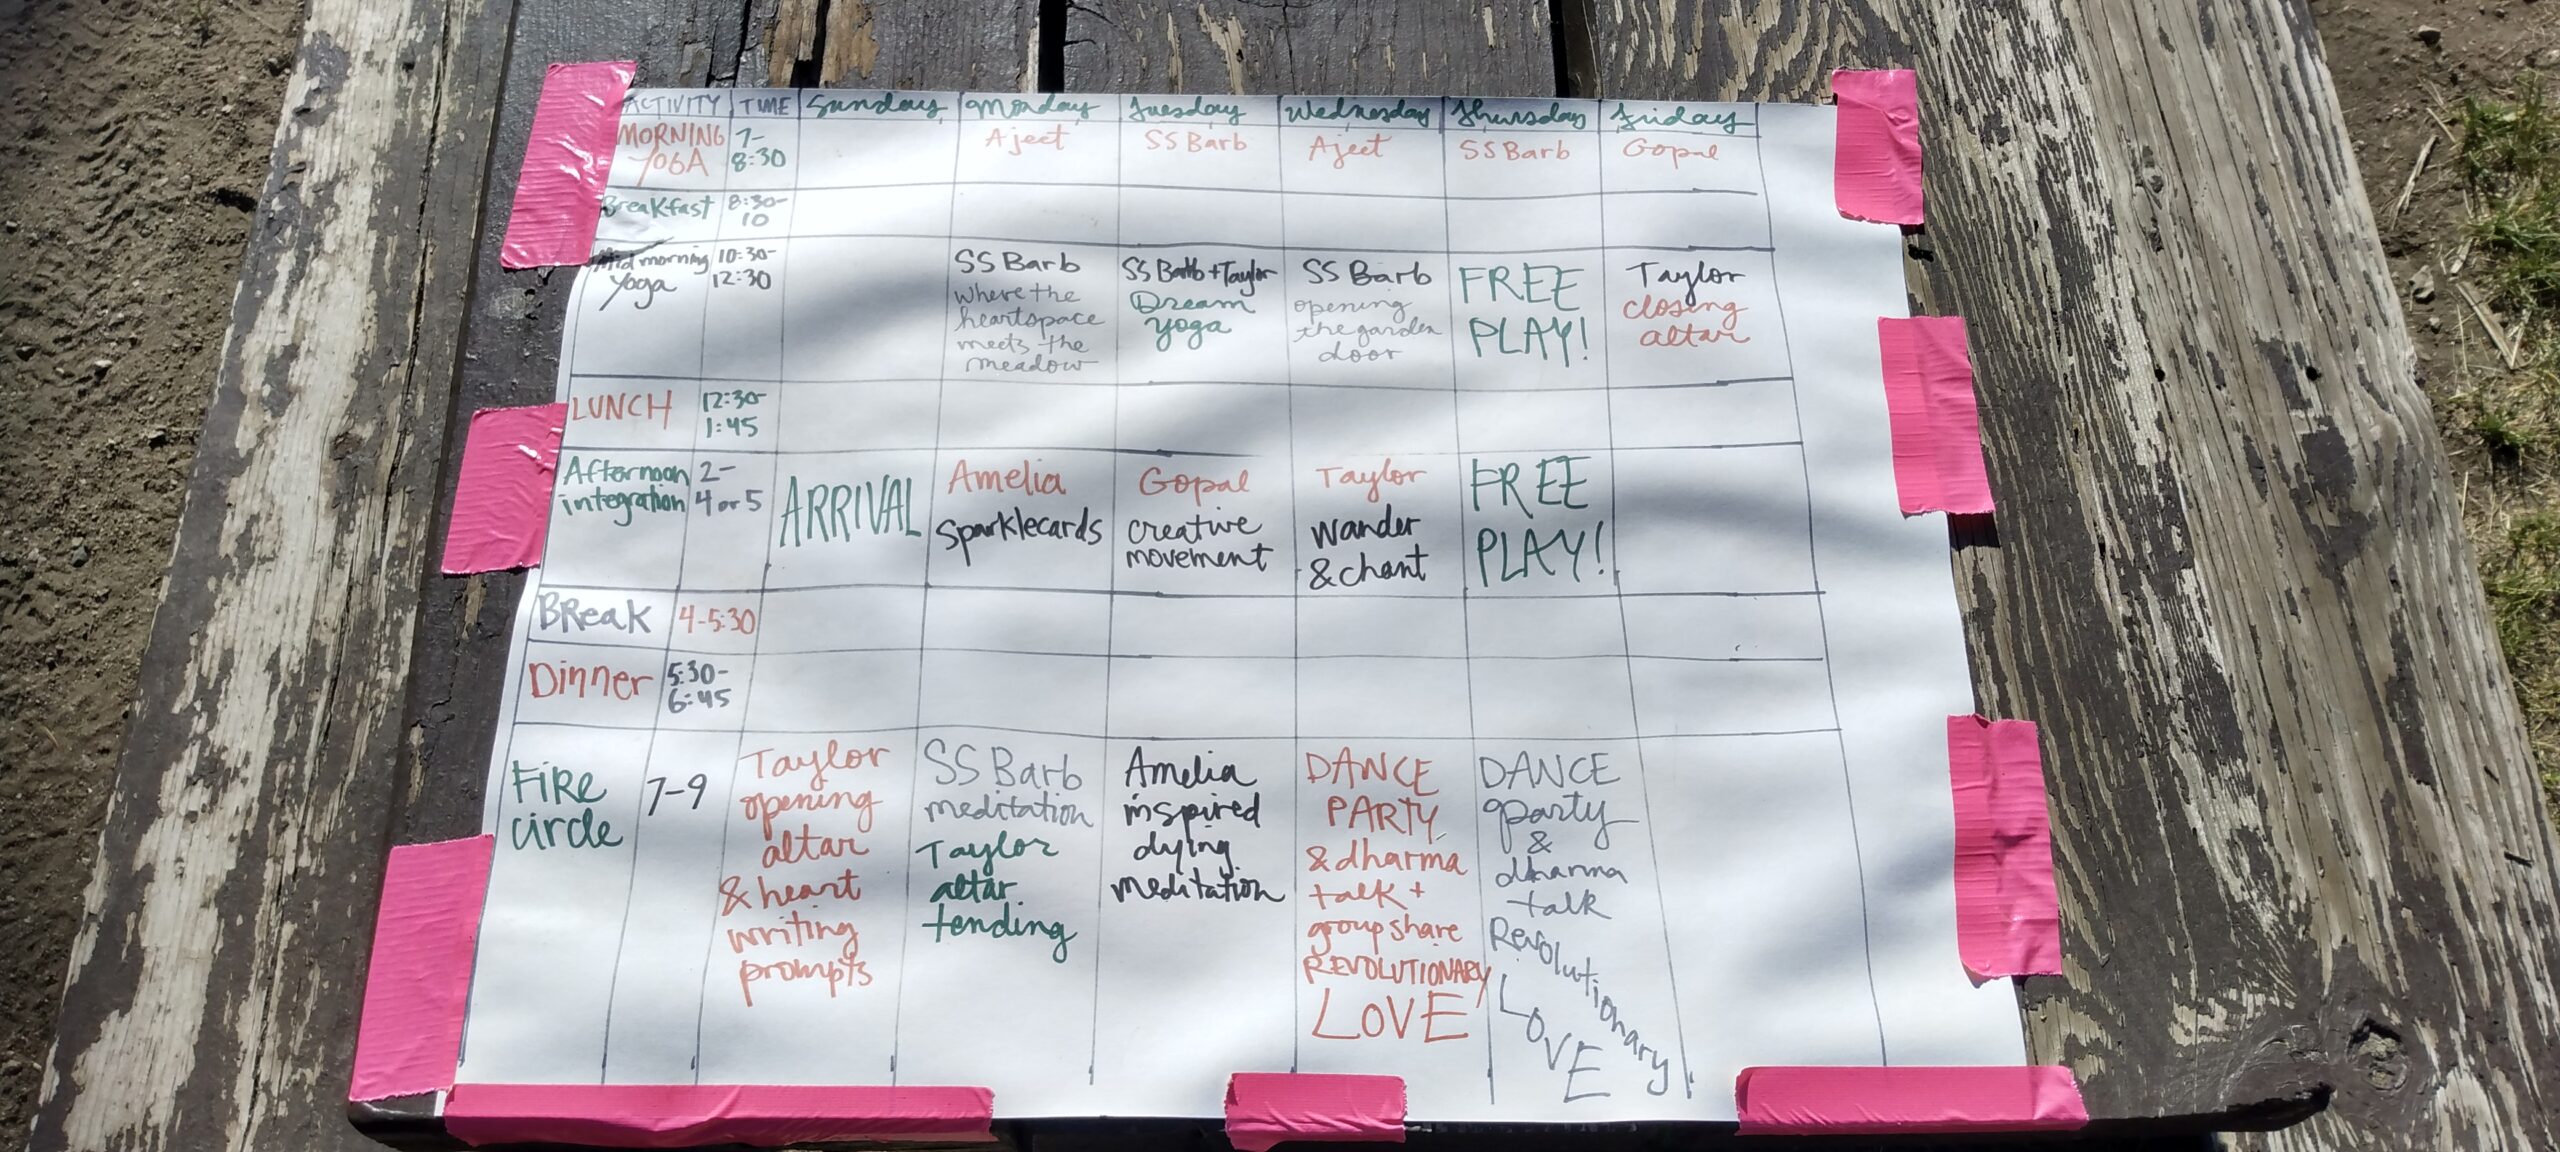 ACTIVITY TIME Sunday Monday Tuesday Wednesday Thursday Friday
MORNING 7- Ajeet SS Barb Ajeet SS Barb Gopal
YOGA 8:30
Breakfast 8:30-
10
Mid morning 10:30- SS Barb SS Barb + Taylor SS Barb FREE Taylor
Yoga 12:30 where the Dream opening PLAY! closing
heartspace yoga the garden altar
meets the door
meadow
LUNCH 12:30-
1:45
Afternoon 2- ARRIVAL Amelia Gopal Taylor FREE
integration 4 or 5 Sparklecards creative wander PLAY!
movement & chant
BReaK 4-5:30
Dinner 5:30-
6:45
FiRe 7-9 Taylor SS Barb Amelia DANCE DANCE
circle opening meditation inspired PARTY party
altar Taylor dying & dharma &
& heart altar meditation talk + dharma
writing tending group share talk
prompts REVOLUTIONARY Revolutionary
LOVE LOVE